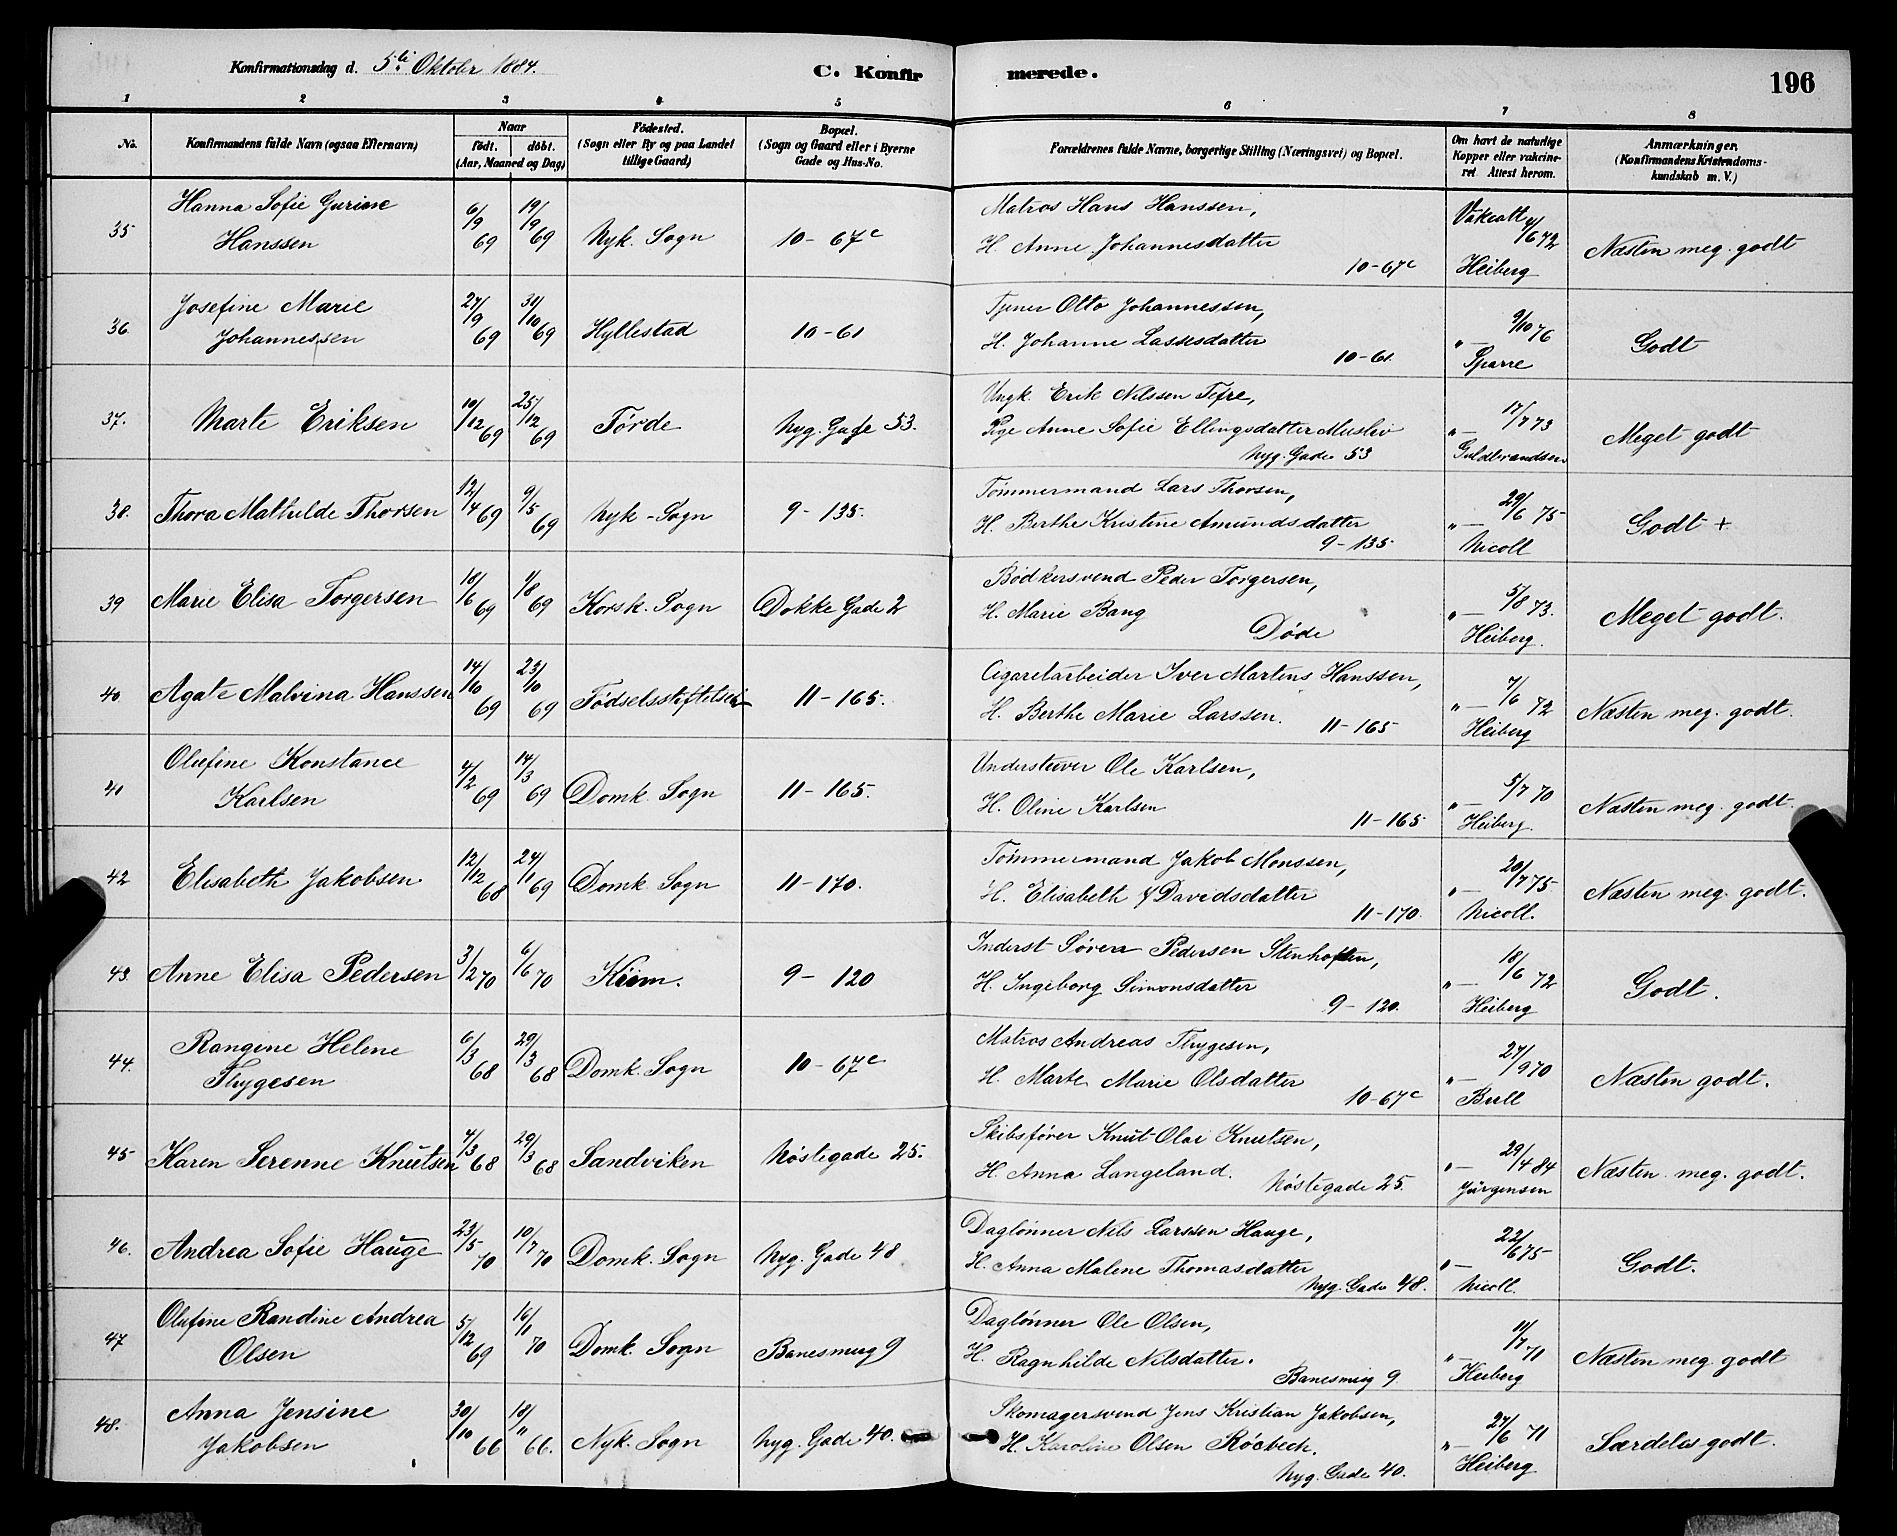 Konfirmationsdag d. 5te Oktober 1884. C. Konfirmerede. 196
1 2 3 4 5 6 7 8
No. Konfirmandens fulde Navn (ogsaa Efternavn) Naar født. døbt. (Aar, Maaned og Dag) Fødested. (Sogn eller By og paa Landet tillige Gaard) Bopæl. (Sogn og Gaard eller i Byerne Gade og Hus-No. Forældrenes fulde Navne, borgerlige Stilling (Næringsvei) og Bopæl. Om havt de naturlige Kopper eller vakcineret Attest herom. Anmærkninger. (Konfirmandens Kristendomskundskab m. V.)
35 Hanna Sofie Gurine Hanssen 6/9 69 19/9 69 Nyk. Sogn 10-67c Matros Hans Hanssen, H. Anne Johannesdatter 10-67c Vakcatt 4/6 72 Heiberg Næsten meg. godt
36. Josefine Marie Johannessen 27/9 69 31/10 69 Hyllestad 10-61 Tjener Otto Johannessen, H. Johanne Lassesdatter 10-61. "— 9/10 76 Sparre Godt
37. Marte Eriksen 10/12 69 25/12 69 Førde Nyg. Gade 53. Ungk. Erik Nilssen Tefre, Pige Anne Sofie Ellingsdatter Nyg. Gade 53 "— 17/7 73 Guldbrandsen Meget godt
38. Thora Mathilde Thorsen 12/4 69 9/5 69 Nyk-Sogn 9-135. Tømmermand Lars Thorsen, H. Berthe Kristine Amundsdatter 9-135 "— 29/6 75 Nicoll Godt +
39 Marie Elisa Torgersen 18/6 69 1/8 69 Korsk. Sogn Dokke Gade 2 Bødkersvend Peder Torgersen, H. Marie Bang Døde "— 5/8 73. Heiberg. Meget godt.
40. Agate Malvina Hanssen 14/10 69 23/10 69 Fødselsstiftelsen 11-165. Cigaretarbeider Iver Martens Hanssen, H. Berthe Marie Larssen. 11-165 "— 7/6 72 Heiberg Næsten meg. godt.
41 Olufine Konstance Karlsen 4/2 69 14/3 69 Domk. Sogn 11-165. Understuver Ole Karlsen, H. Oline Karlsen 11-165 "— 5/7 70 Heiberg. Næsten meg. godt.
42 Elisabeth Jakobsen 12/12 68 24/1 69 Domk. Sogn 11-170. Tømmermand Jakob Monssen, H. Elisabeth Davidsdatter 11-170. "— 20/7 75 Nicoll. Næsten meg. godt.
43. Anne Elisa Pedersen 3/2 70 6/6 70 Kinn. 9-120 Inderst Søren Pedersen Stenhoften, H. Ingeborg Simonsdatter 9-120. "— 18/6 72 Heiberg Godt.
44. Rangine Helene Thygesen 6/3 68 29/3 68 Domk. Sogn 10-67c Matros Andreas Thygesen, H. Marte Marie Olsdatter 10-67c "— 27/9 70 Bull Næsten godt.
45 Karen Serenne Knutsen 4/3 68 29/3 68 Sandviken Nøstegade 25. Skibsfører Knut Olai Knutsen, H. Anna Langeland. Nøstegade 25. "— 29/4 84 Jürgensen Næsten meg. godt.
46. Andrea Sofie Hauge 23/5 70 10/7 70 Domk. Sogn Nyg. Gade 48 Dagløner Nils Larssen Hauge, H. Anna Malene Thomasdatter Nyg. Gade 48. "— 22/6 75 Nicoll. Godt.
47 Olufine Randine Andrea Olsen 5/12 69 16/1 70 Domk. Sogn Banesmug 9 Dagløner Ole Olsen, H. Ragnhilde Nilsdatter. Banesmug 9. "— 11/7 71 Heiberg Næsten meg. godt
48. Anna Jensine Jakobsen 30/10 66 18/11 66. Nyk. Sogn Nyg. Gade 40. Skomagersvend Jens Kristian Jakobsen, H. Karoline Olsen Røsbech. Nyg. Gade 40. "— 27/6 71 Heiberg Særdeles godt.